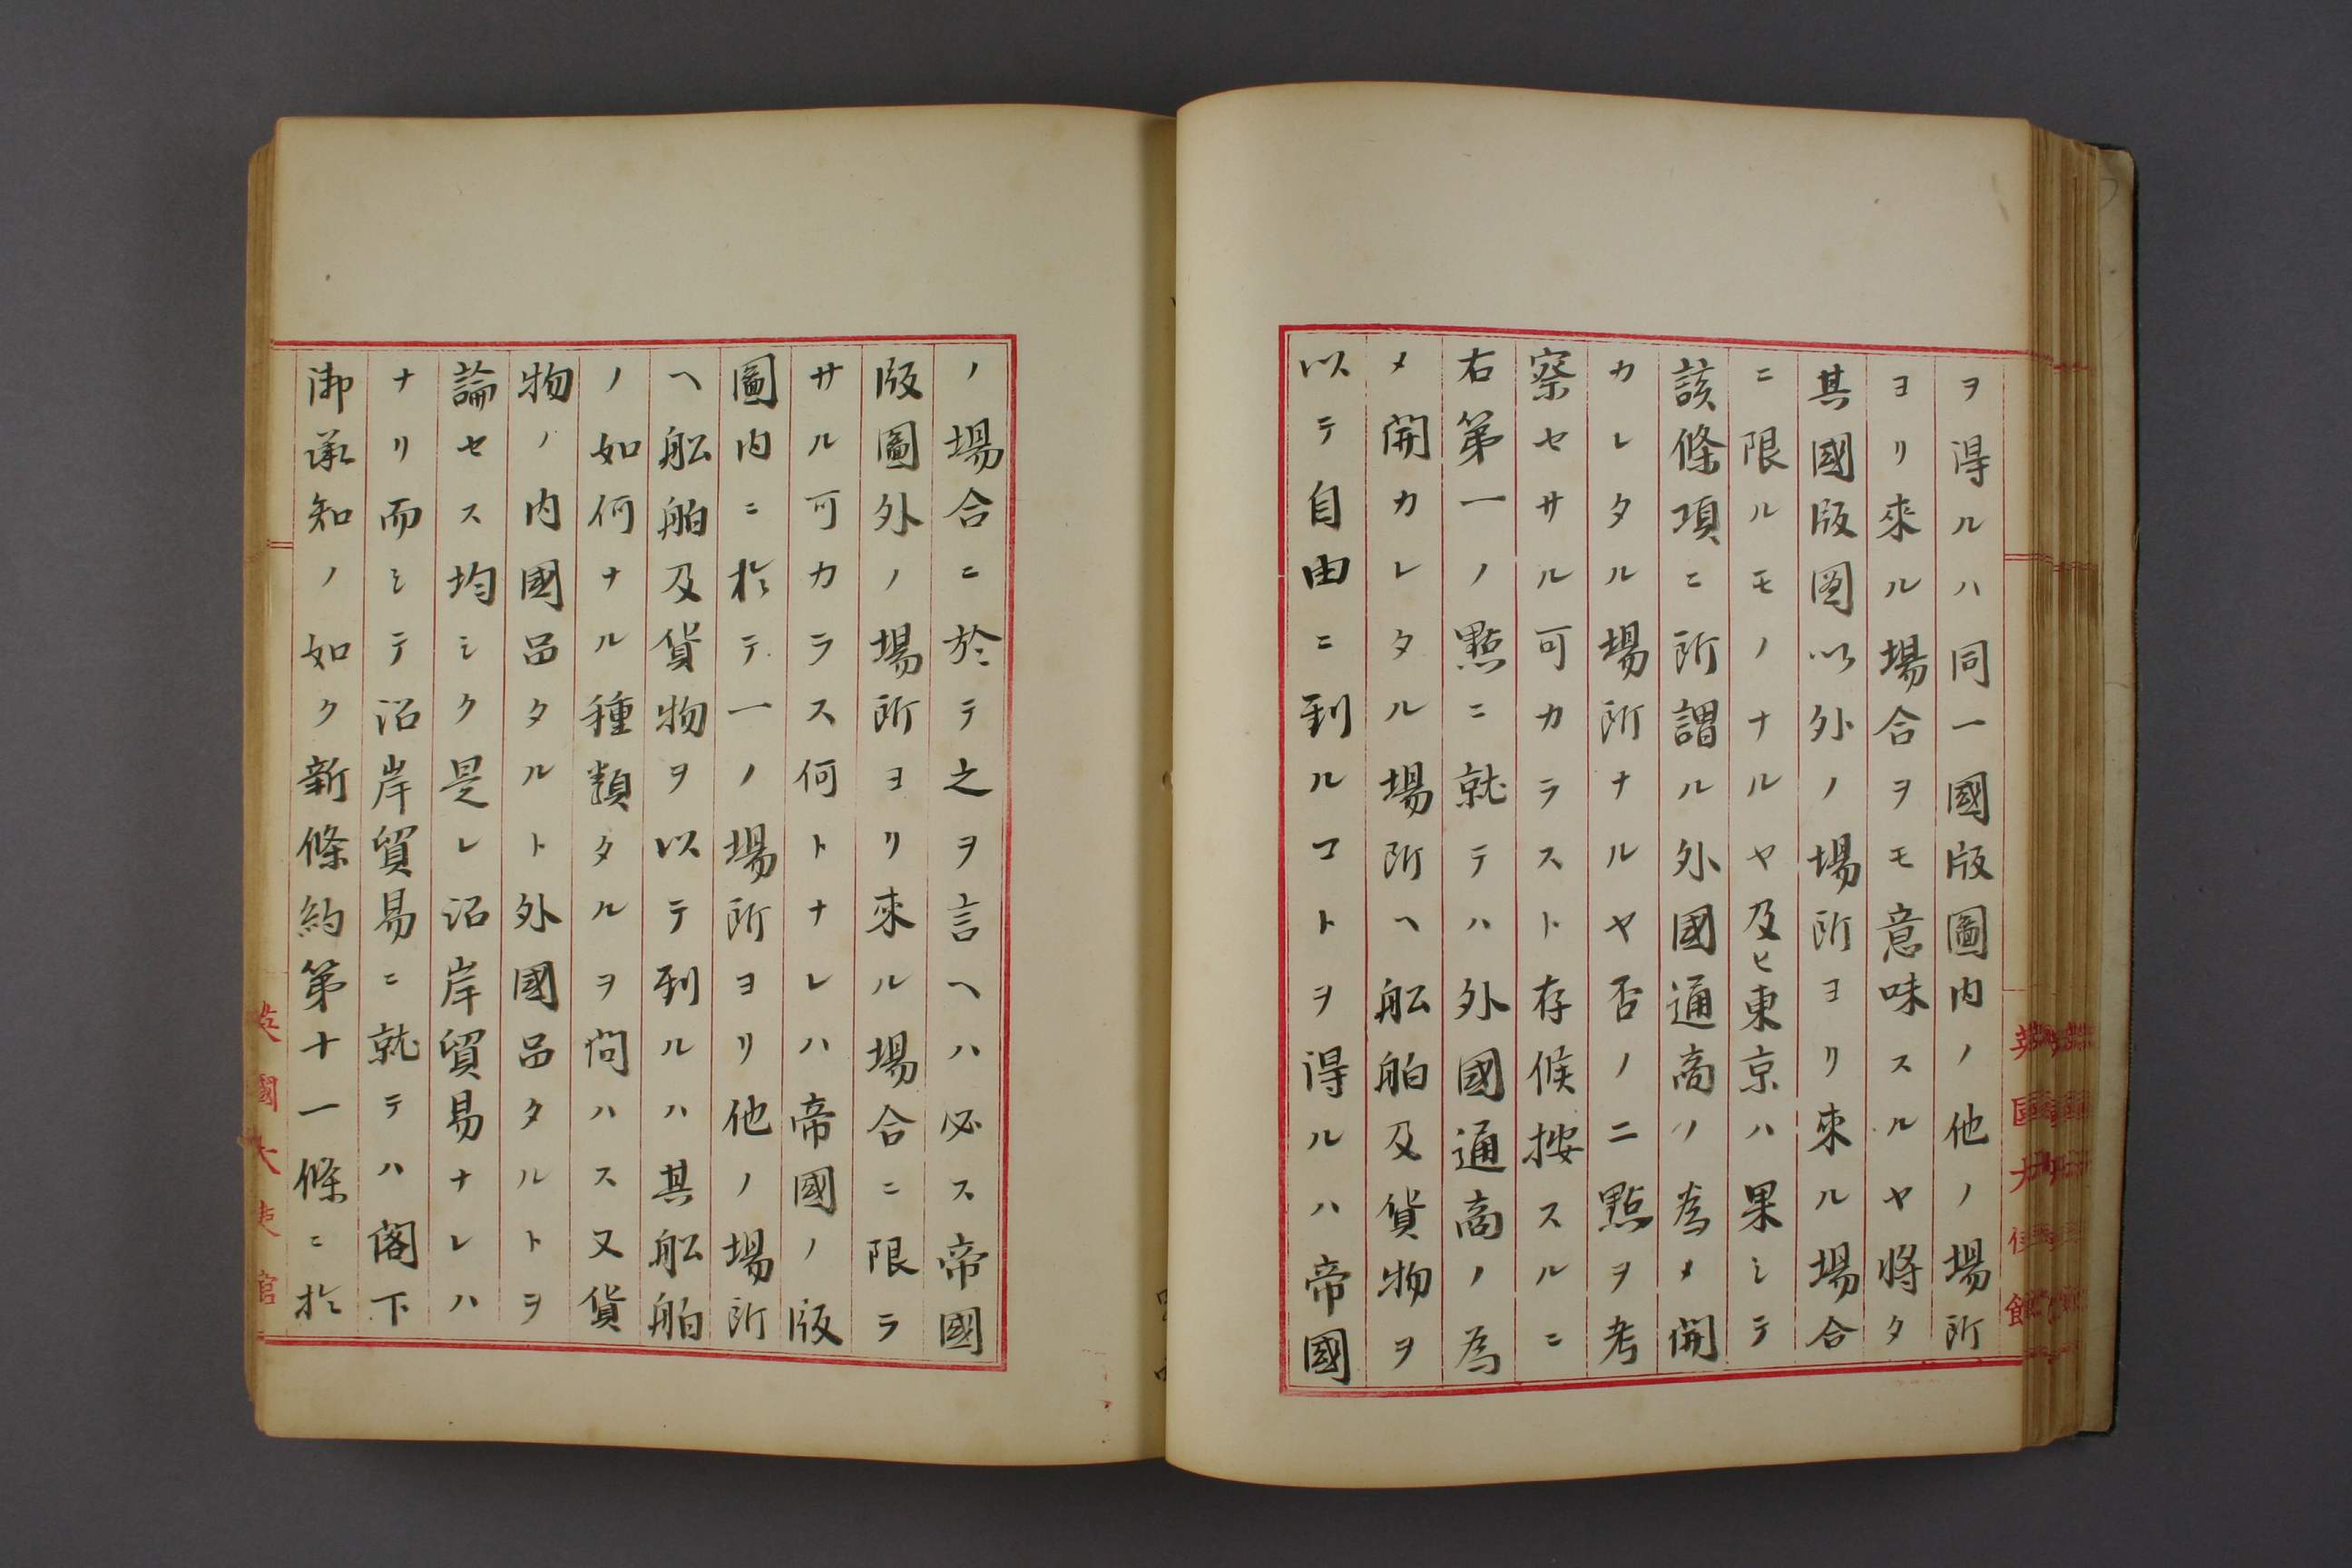 ヲ得ルハ同一國版圖内ノ他ノ場所
ヨリ來ル場合ヲモ意味スルヤ将タ
其國版図以外ノ場所ヨリ来ル場合
ニ限ルモノナルヤ及ヒ東京ハ果シテ
該條項ニ所謂ル外國通商ノ為メ開
カレタル場所ナルヤ否ノ二點ヲ考
察セサル可カラスト存候按スルニ
右第一ノ點ニ就テハ外國通商ノ為
メ開カレタル場所ヘ舩舶及貨物ヲ
以テ自由ニ到ルコトヲ得ルハ帝國
ノ場合ニ於テ之ヲ言ヘハ必ス帝國
版圖外ノ場所ヨリ來ル場合ニ限ラ
サル可カラス何トナレハ帝國ノ版
圖内ニ於テ一ノ場所ヨリ他ノ場所
ヘ舩舶及貨物ヲ以テ到ルハ其舩舶
ノ如何ナル種類タルヲ問ハス又貨
物ノ内國品タルト外國品タルトヲ
論セス均シク是レ沿岸貿易ナレハ
ナリ而シテ沿岸貿易ニ就テハ閣下
御承知ノ如ク新條約第十一條ニ於
英國大使館